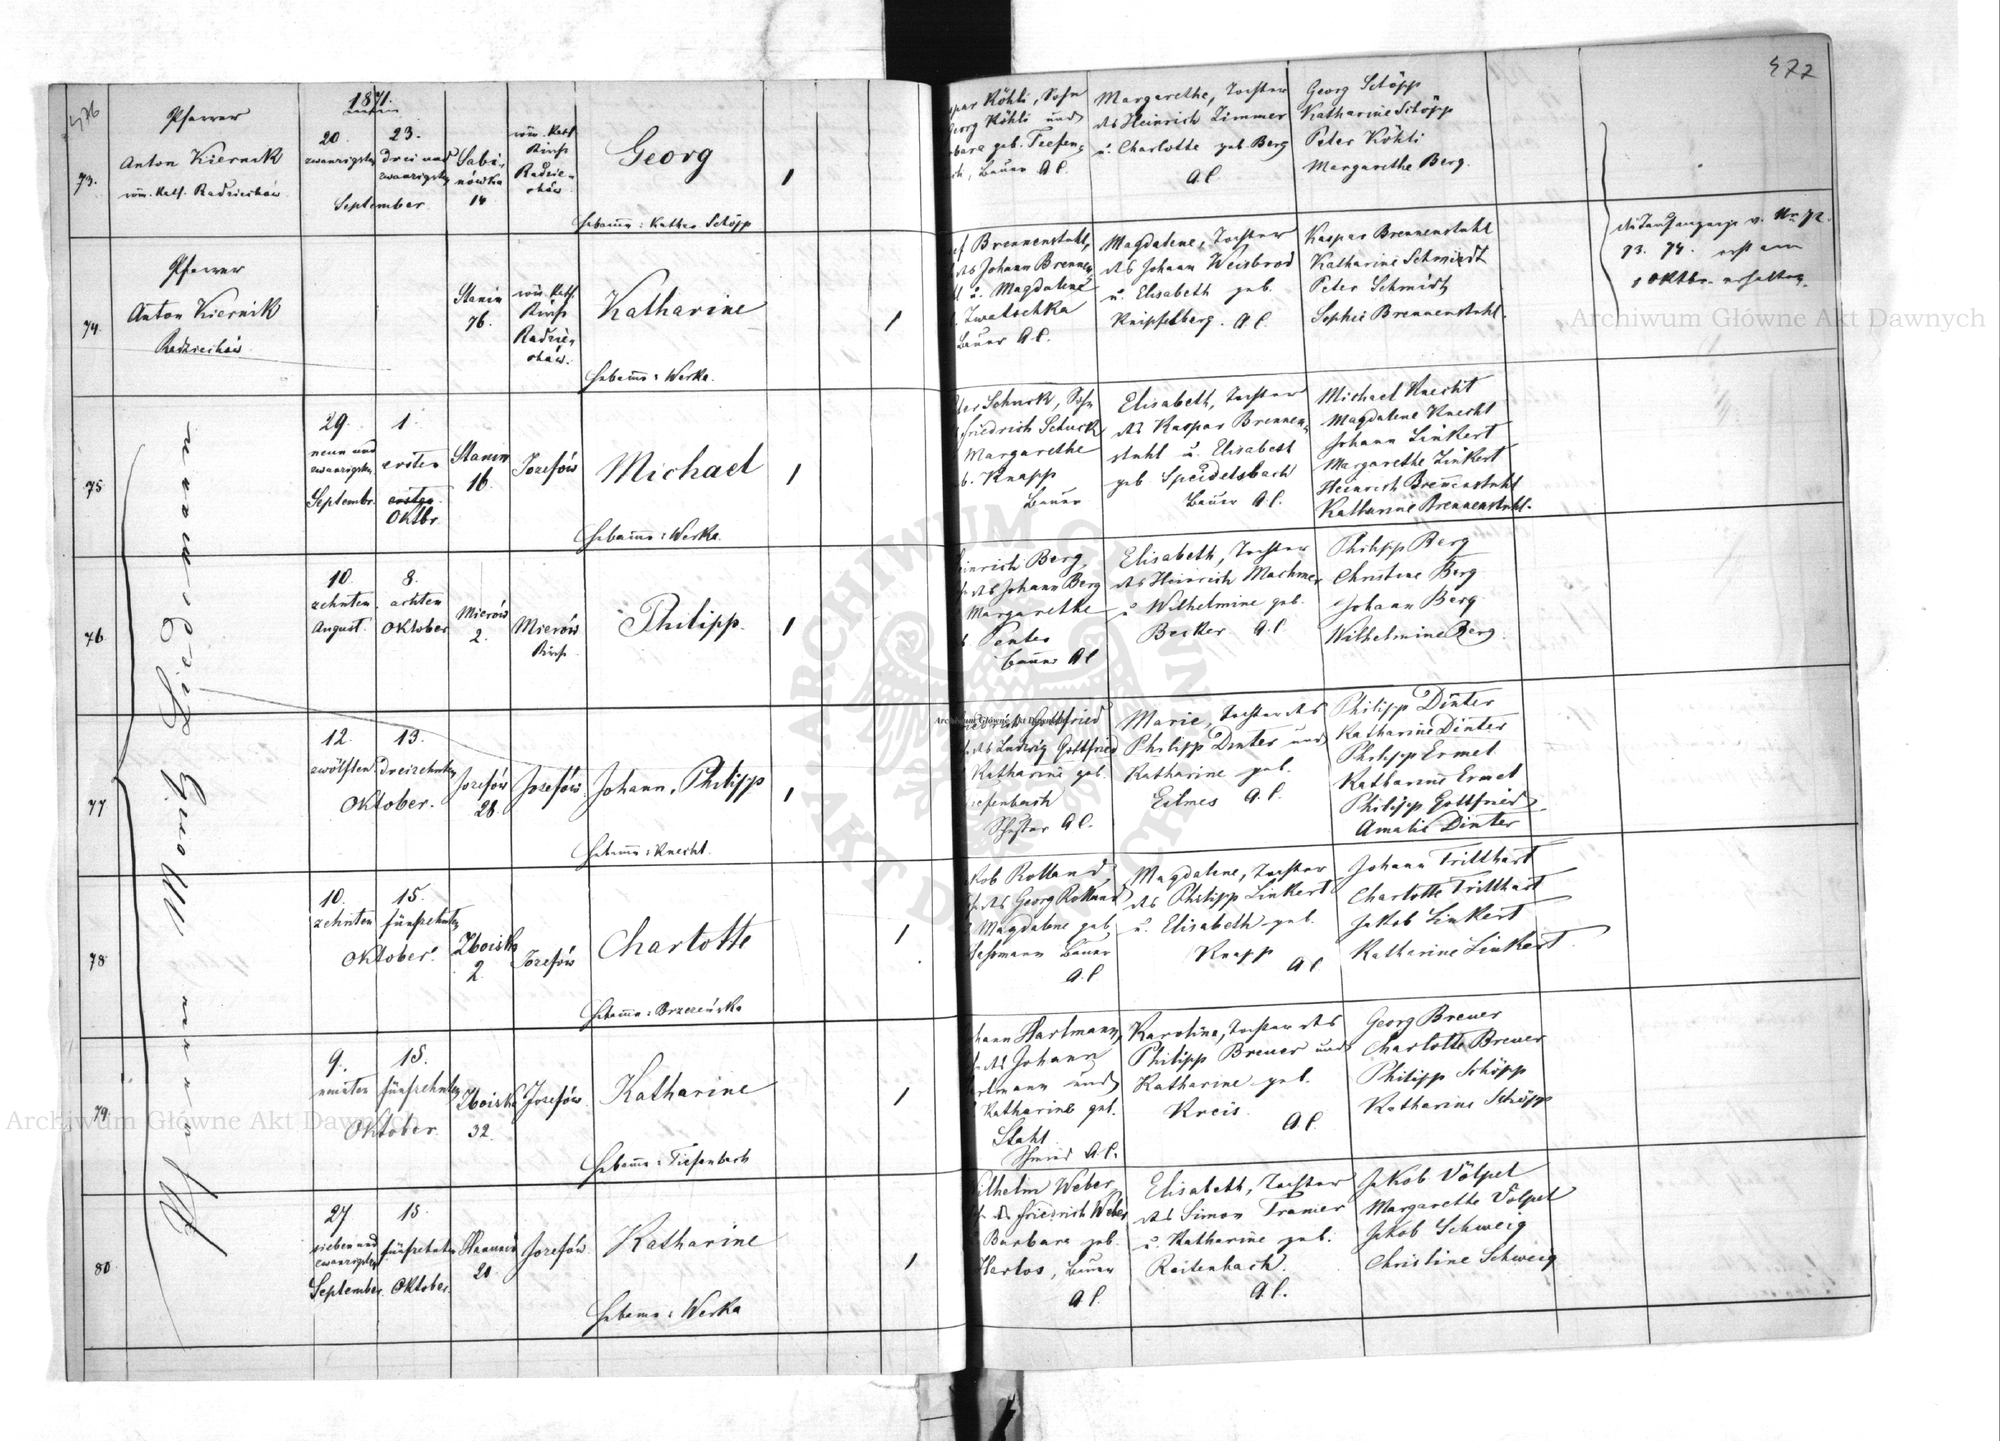 476
1871.
Pfarrer
Anton Kiernik
röm. kath. Radziechów
73.
20.
zwanzigsten
23.
drei und
zwanzigsten
September
Sabi-
nówka
14
röm. kath
Kirche
Radzie-
chów
Georg
1
Hebamme: Kathar. Schöpp
Pfarrer
Anton Kiernik
Radziechów
74.
Stanin
76.
röm. kath.
Kirche
Radzie-
chów.
Katharine
1
Hebamme: Werka.
Pfarrer Moriz Niedermann
75
29.
neun und
zwanzigsten
Septembr.
1.
ersten
Oktbr.
Stanin
16.
Jozefów
Michael
1
Hebamme: Werka.
76.
10.
zehnten
August.
8.
achten
Oktober
Mierów
2.
Mierów
Kirche
Philipp.
1
77
12.
zwölften
13.
dreizehnten
Oktober.
Jozefów
28.
Jozefów.
Johann, Philipp
1
Hebamme: Knecht.
78.
10.
zehnten
15.
fünfzehnten
Oktober.
Zboiska
2.
Jozefów
Charlotte
1
Hebamme: Brzezińska
79.
9.
neunten
15.
fünfzehnten
Oktober.
Zboiska
32.
Jozefów
Katharine
1
Hebamme: Tiefenbach
80
27
sieben und
zwanzigsten
September.
15.
fünfzehnten
Oktober.
20
Jozefów.
Katharine
1
Hebamme: Werka
477
Köhli, Sohn
Georg Köhli und
geb. Tiefen-
Bauer A.C.
Margarethe, Tochter
des Heinrich Zimmer
u. Charlotte geb. Berg
A.C.
Georg Schöpp
Katharine Schöpp
Peter Köhli
Margarethe Berg.
Brennenstuhl,
des Johann Brennen-
u. Magdalene
Zwatschka
Bauer A.C.
Magdalene, Tochter
des Johann Weisbrod
u. Elisabeth geb.
Knipfelberg. A.C.
Kaspar Brennenstuhl
Katharine Schmidt
Peter Schmidt
Sophie Brennenstuhl.
v. Nr. 72.
73. 74. erst am
Oktbr. erhalten.
Schuck, Sohn
Friedrich Schuck
Margarethe
Knapp
Bauer
Elisabeth, Tochter
des Kaspar Brennen-
stuhl u. Elisabeth
geb. Speidelsbach
Bauer A.C.
Michael Knecht
Magdalene Knecht
Johann Linkert
Margarethe Linkert
Heinrich Brennenstuhl
Katharine Brennenstuhl.
Berg,
des Johann Berg
Margarethe
Penter
Bauer A.C.
Elisabeth, Tochter
des Heinrich Machmer
u. Wilhelmine geb.
Becker A.C.
Philipp Berg
Christine Berg
Johann Berg
Wilhelmine Berg.
Gottfried
des Ludwig Gottfried
Katharine geb.
Schuster A.C.
Marie, Tochter des
Philipp Dinter und
Katharine geb.
Eilmes A.C.
Philipp Dinter
Katharine Dinter
Philipp Ermel
Katharine Ermel
Philipp Gottfried
Amalie Dinter
Rolland,
des Georg Rolland
Magdalene geb.
Bauer
A.C.
Magdalene, Tochter
des Philipp Linkert
u. Elisabeth geb.
Knapp
A.C.
Johann Tritthart
Charlotte Tritthart
Jakob Linkert
Katharine Linkert.
Hartmann,
des Johann
und
Katharine geb.
Stahl
Schmied A.C.
Karoline, Tochter des
Philipp Breuer und
Katharine geb.
Kreis.
A.C.
Georg Breuer
Charlotte Breuer
Philipp Schöpp
Katharine Schöpp
Weber,
des Friedrich Weber
Barbara geb.
Harlos, Bauer
A.C.
Elisabeth, Tochter
des Simon Tranier
u. Katharine geb.
Reitenbach.
A.C.
Jakob Völpel
Margarethe Völpel
Jakob Schweig
Christine Schweig
Archiwum Główne Akt Dawnych
Archiwum Główne Akt Dawnych
Archiwum Główne Akt Dawnych